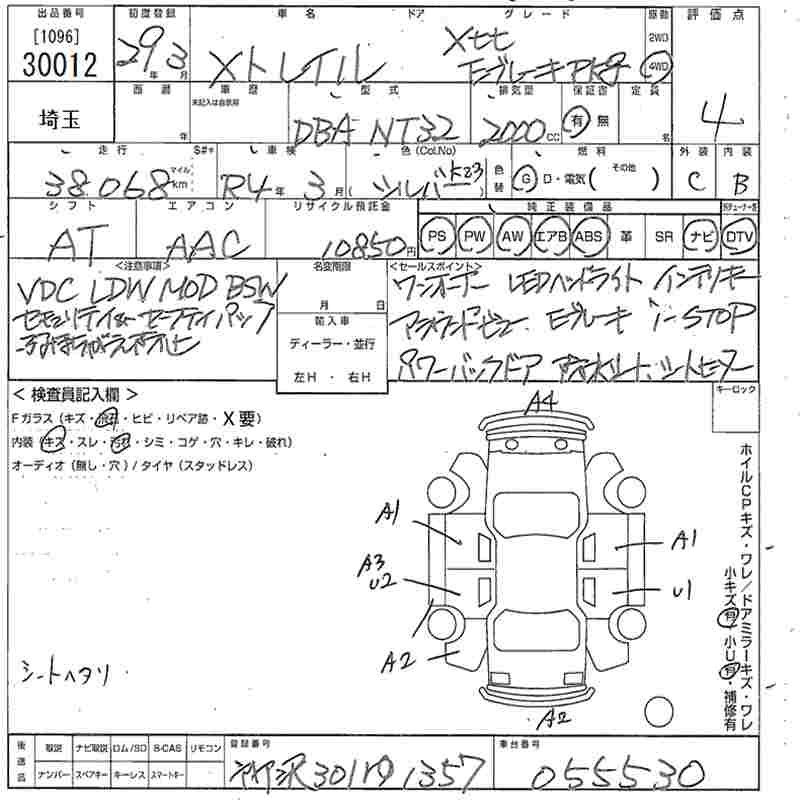 出品番号 初度登録 車名 ドア グレード 原動 評価点
[1096] 30012 29年 3月 Xトレイル Xtt エブレーキPkg 2WD 4WD 4
埼玉 西暦 年 車歴 未記入は自家用 型式 DBA NT32 排気量 2000cc 保証書 有 無 定員 名
走行 マイル S#* 車検 色(Col.No) 色替 燃料 外装 内装
38,068 km R4年 3月 (シルバー K23) G D・電気( その他 ) C B
シフト エアコン リサイクル預託金 純正装備品
AT AAC 10850円 PS PW AW エアB ABS 革 SR ナビ DTV
<注意事項> 名変期限 <セールスポイント>
VDC LDW MOD BSW ワンオーナー LEDヘッドライト インテリキー
月 日
輸入車 アラウンドビュー エブレーキ i-STOP
ディーラー・並行 パワーバックドア 防水シート、シートヒーター
左H・右H
キーロック
< 検査員記入欄 >
Fガラス(キズ・飛石・ヒビ・リペア跡・X要)
内装(キズ・スレ・汚れ・シミ・コゲ・穴・キレ・破れ)
オーディオ(無し・穴)/タイヤ(スタッドレス)
A4
A1 A1
A3
U2 U1
A2
A2
シートヘタリ
ホイルCPキズ・ワレ/ドアミラーキズ・ワレ
小キズ有・小U有・補修有
後送品 取説 ナビ取説 ロム/SD B-CAS リモコン 登録番号 車台番号
ナンバー スペアキー キーレス スマートキー 301 1357 055530